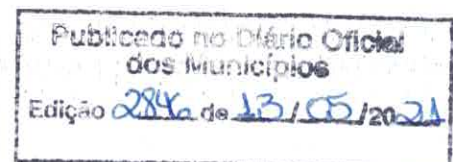 Publicado no Diário Oficial
dos Municípios
Edição 2846 de 13/05/2021